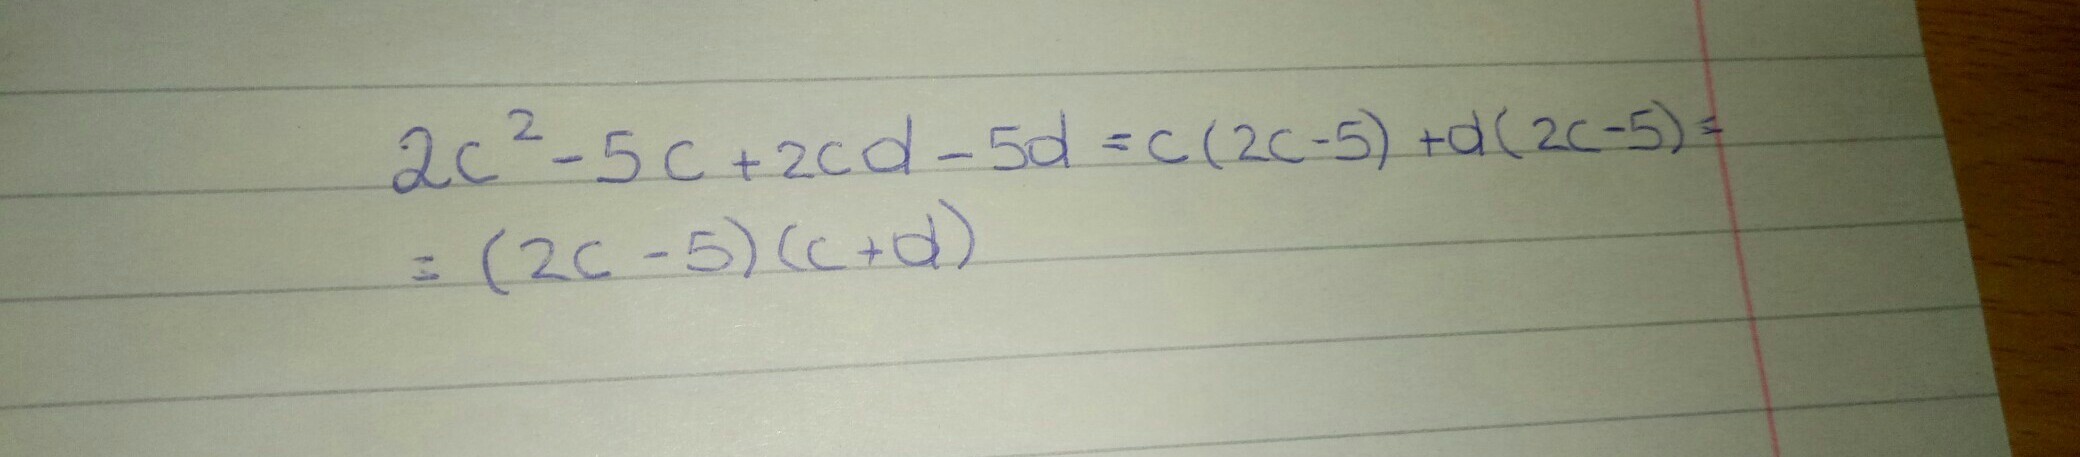 2c²-5c+2cd-5d=c(2c-5)+d(2c-5)=
=(2c-5)(c+d)